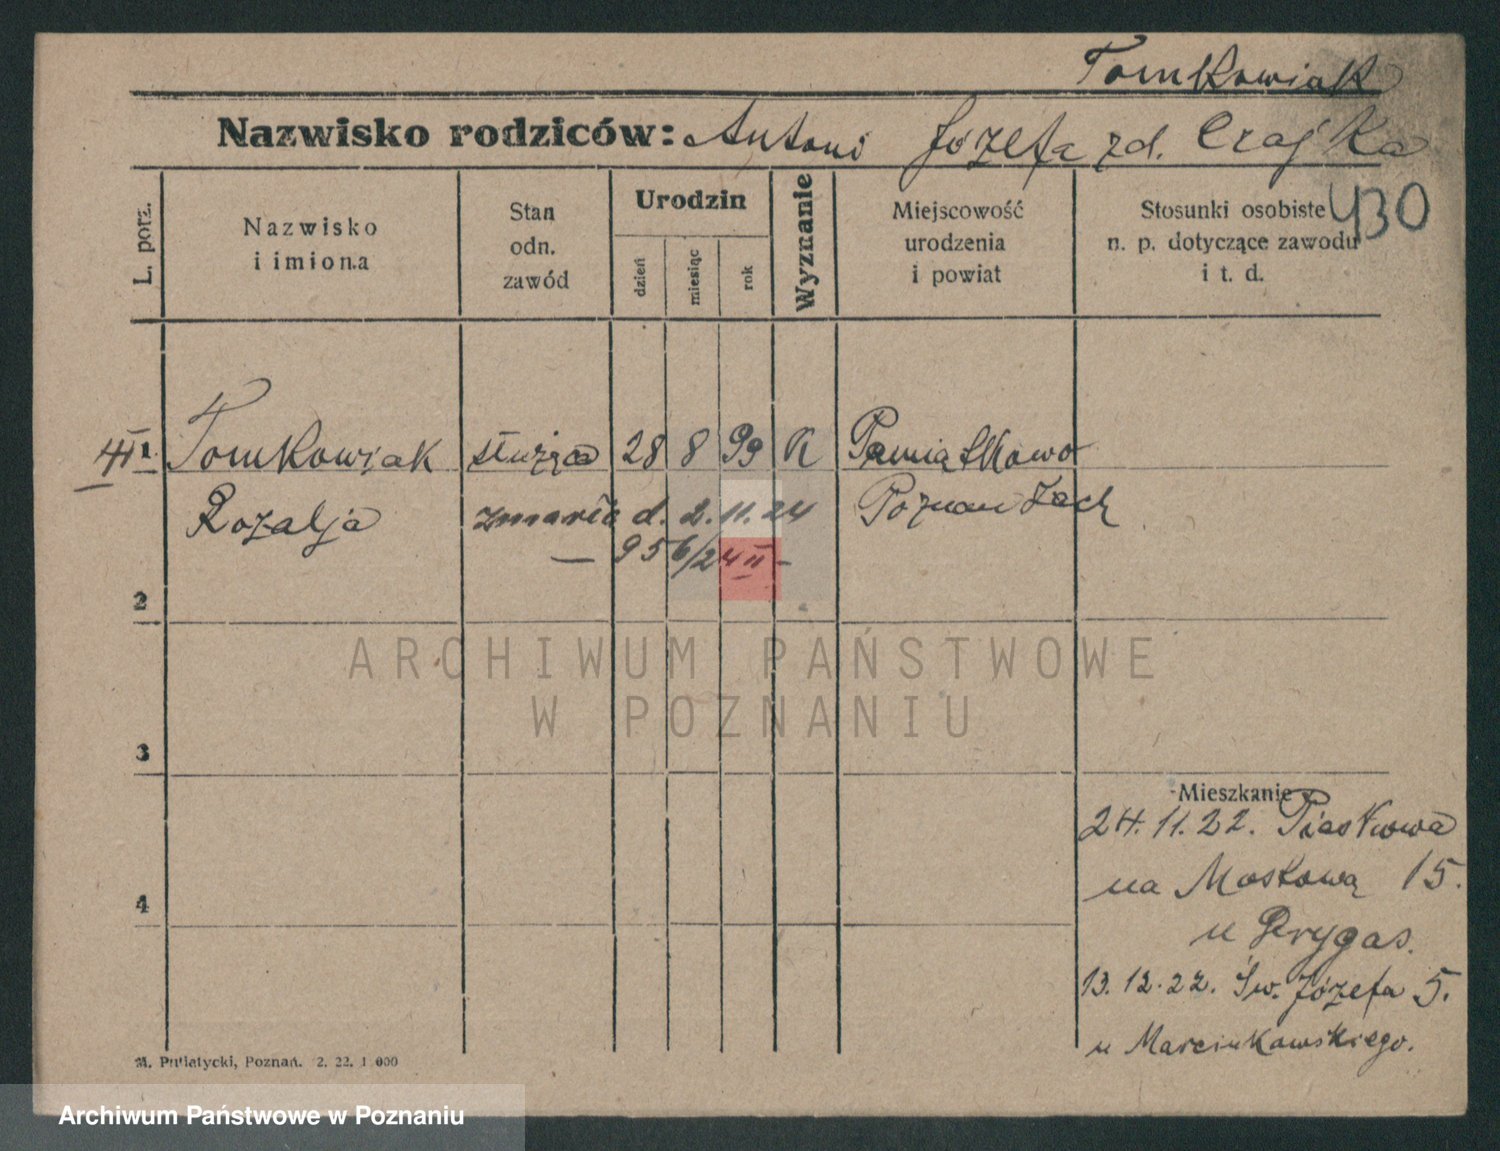 Tomkowiak
Nazwisko rodziców: Antoni Józefa zd. Czajka
L. porz.
Nazwisko i imiona
Stan odn. zawód
Urodzin
dzień
miesiąc
rok
Wyznanie
Miejscowość urodzenia i powiat
Stosunki osobiste n. p. dotyczące zawodu i t. d.
430
1. Tomkowiak służąca 28 8 99 K Pamiątkowo
Rozalja zmarła d. 2.11.24 Poznań Zach
— 956/24 II —
2
ARCHIWUM PAŃSTWOWE
W POZNANIU
3
Mieszkanie
24.11.22. Piaskowa
na Mostową 15.
4
u Prygas.
13.12.22. Św. Józefa 5.
u Marcinkowskiego.
M. Putiatycki, Poznań. 2. 22. 1 000
Archiwum Państwowe w Poznaniu